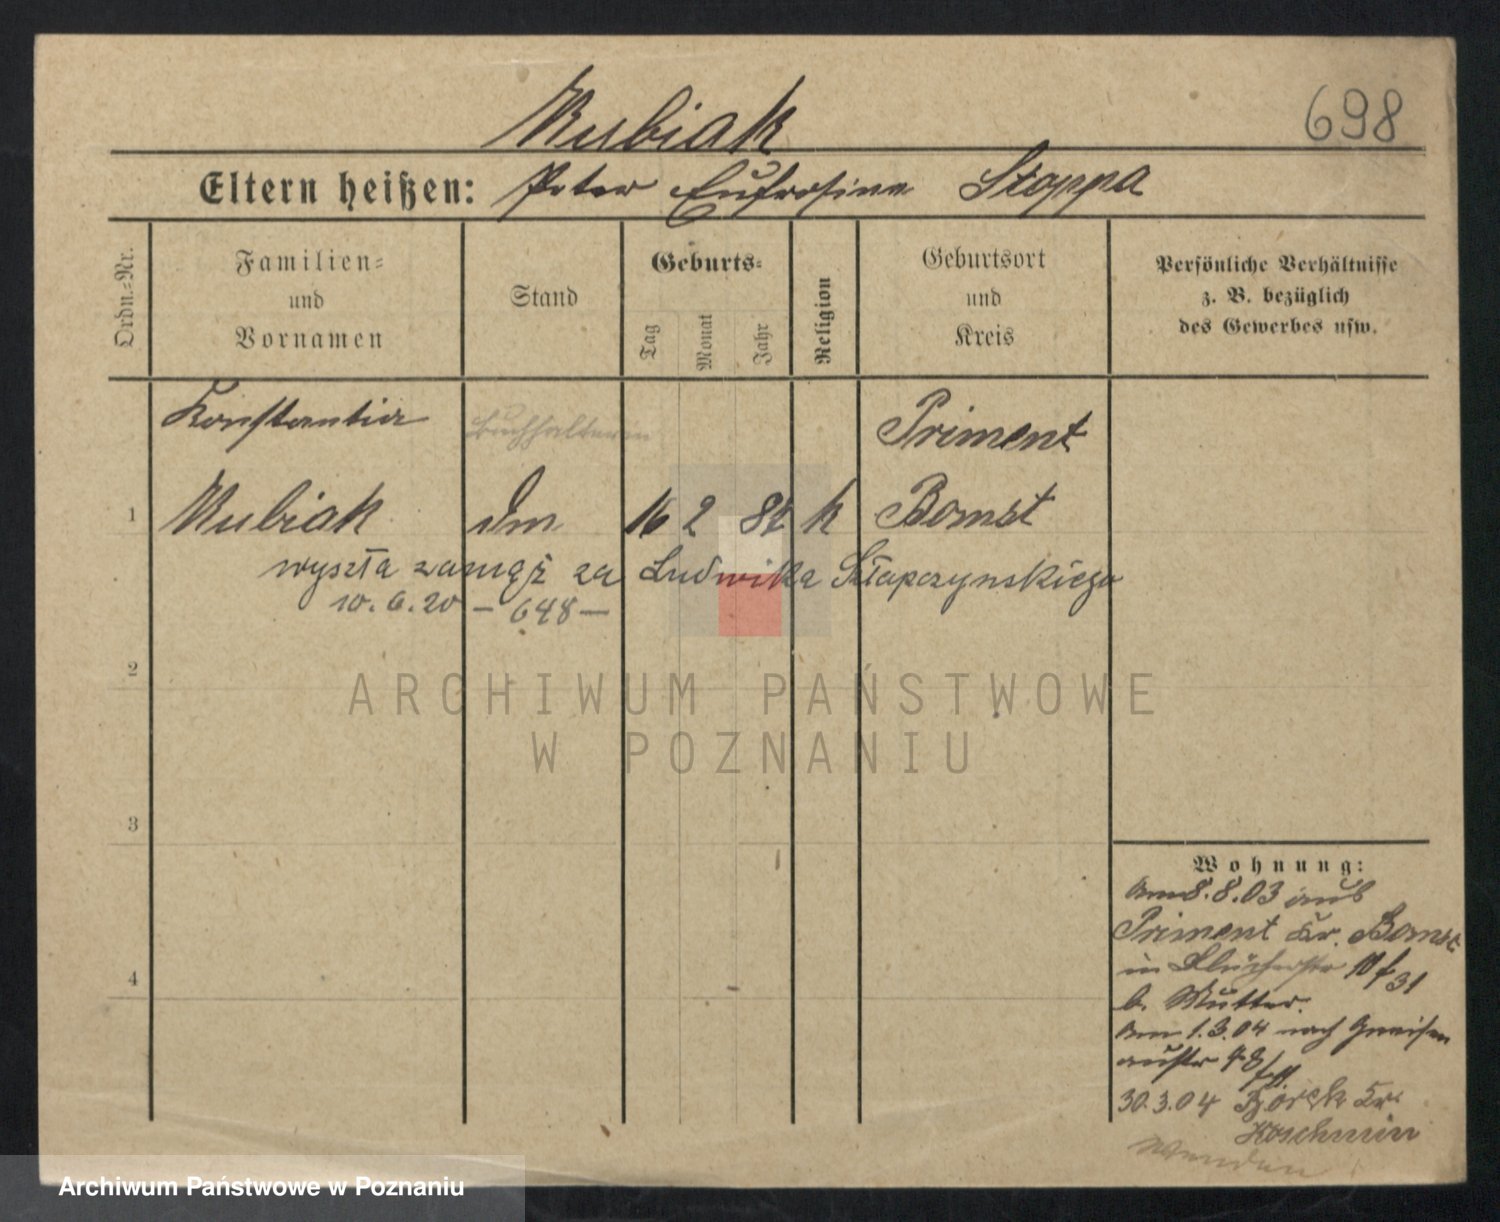 Kubiak
698
Eltern heißen: Peter Eufrosine Stoppa
Ordn.=Nr.
Familien=
und
Vornamen
Stand
Geburts=
Tag
Monat
Jahr
Religion
Geburtsort
und
Kreis
Persönliche Verhältnisse
z. B. bezüglich
des Gewerbes usw.
Konstantia Buchhalterin Priment
1 Kubiak 16 2 k Bomst
wyszła zamąż za Ludwika Szłapczynskiego
10.6.20 – 648 –
2
ARCHIWUM PAŃSTWOWE
W POZNANIU
3
4
Wohnung:
Am 8.8.03 aus
Priment Kr. Bomst
in Blücherstr 10 31
b. Mutter.
Am 1.3.04 nach Gneisen
austr 48
30.3.04 Kr.
Koschmin
Wenden
Archiwum Państwowe w Poznaniu